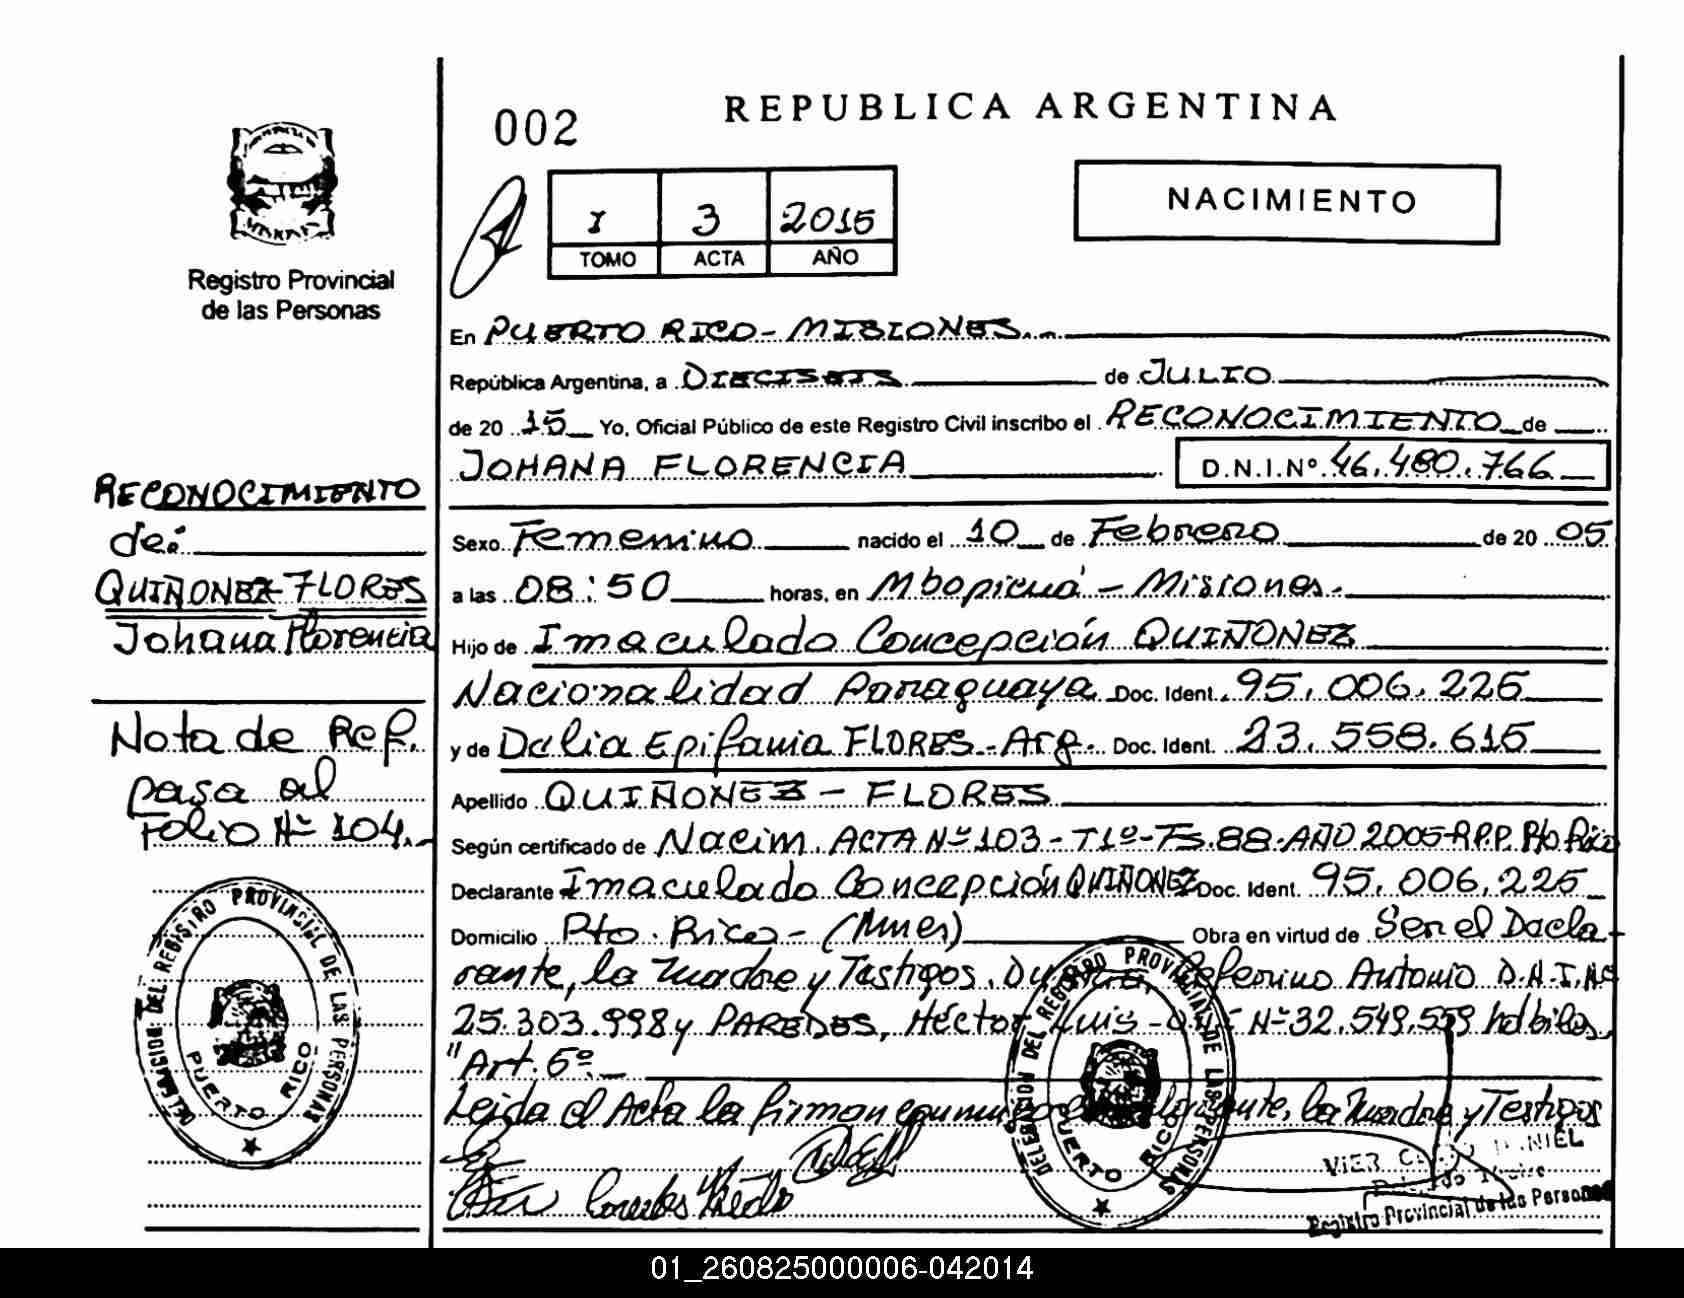 002
REPUBLICA ARGENTINA
NACIMIENTO
I 3 2015
TOMO ACTA AÑO
Registro Provincial
de las Personas
En PUERTO RICO - MISIONES.
República Argentina, a DIECISEIS de JULIO
de 20 15 Yo, Oficial Público de este Registro Civil inscribo el RECONOCIMIENTO de
JOHANA FLORENCIA D.N.I.Nº 46.480.766
RECONOCIMIENTO
de:
QUIÑONEZ-FLORES
Johana Florencia
Nota de Ref.
pasa al
Folio Nº 104.-
Sexo Femenino nacido el 10 de Febrero de 20 05
a las 08:50 horas, en Mbopicuá - Misiones.
Hijo de Imaculado Concepción QUIÑONEZ
Nacionalidad Paraguaya Doc. Ident. 95.006.225
y de Delia Epifania FLORES - Arg. Doc. Ident. 23.558.615
Apellido QUIÑONEZ - FLORES
Según certificado de Nacim. ACTA Nº 103 - T1º - Fs. 88 - AÑO 2005-R.P.P. Pto Rico
Declarante Imaculado Concepción QUIÑONEZ Doc. Ident. 95.006.225
Domicilio Pto. Rico - (Mnes) Obra en virtud de Ser el Decla-
rante, la madre y Testigos, Ceferino Antonio D.N.I. Nº
25.303.998 y PAREDES, Héctor Luis - Nº 32.549.559 hábiles.
"Art. 6º.
Leida el Acta la firman conmigo el la madre y Testigos
DELEGACION DEL REGISTRO PROVINCIAL DE LAS PERSONAS
PUERTO RICO
DELEGACION DEL REGISTRO PROVINCIAL DE LAS PERSONAS
PUERTO RICO
VIER
Registro Provincial de las Personas
01_260825000006-042014